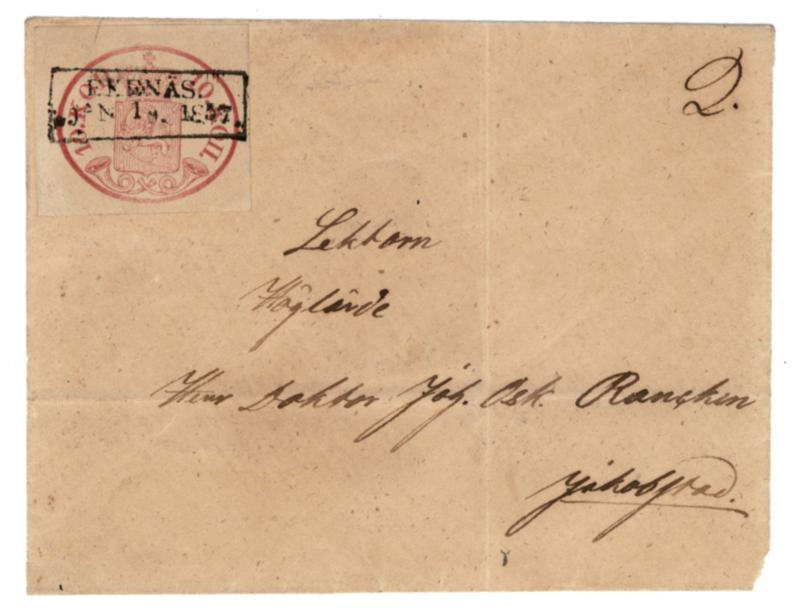 2.
EKENÄS.
JAN. 1857.
10 KOP.
Lektorn
Höglärde
Herr Doktor Joh. Osk. Rancken
Jakobstad.